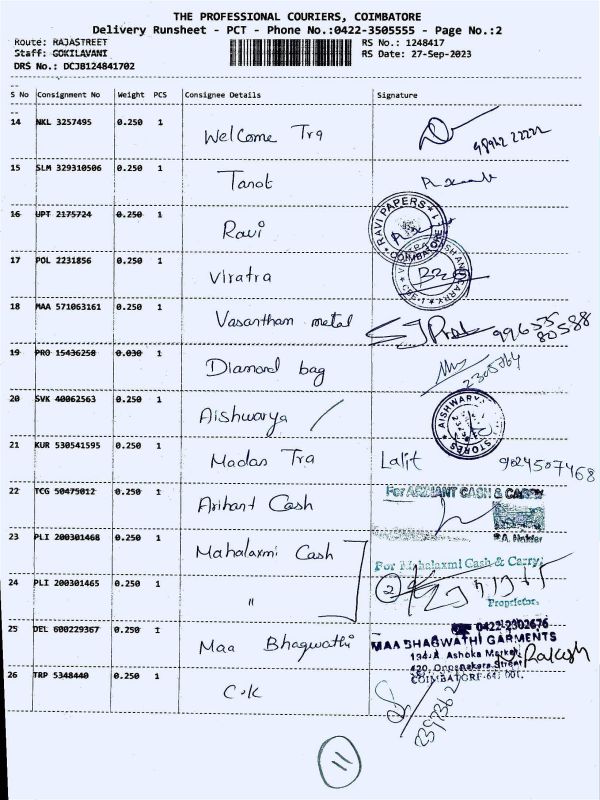 THE PROFESSIONAL COURIERS, COIMBATORE
Delivery Runsheet - PCT - Phone No.:0422-3505555 - Page No.:2
Route: RAJASTREET RS No.: 1248417
Staff: GOKILAVANI RS Date: 27-Sep-2023
DRS No.: DCJB124841702
S No Consignment No Weight PCS Consignee Details Signature
14 NKL 3257495 0.250 1 Welcome Tra
15 SLM 329310506 0.250 1 Tarot
16 UPT 2175724 0.250 1 Ravi RAVI PAPERS COIMBATORE
17 POL 2231856 0.250 1 Viratra
18 MAA 571063161 0.250 1 Vasantham metal
19 PRO 15436258 0.030 1 Diamond bag
20 SVK 40062563 0.250 1 Aishwarya / AISHWARYA STORES
21 KUR 530541595 0.250 1 Madas Tra Lalit 9024507468
22 TCG 50475012 0.250 1 Arihant Cash For ARIHANT CASH & CARRY
23 PLI 200301468 0.250 1 Mahalaxmi Cash For Mahalaxmi Cash & Carry
24 PLI 200301465 0.250 1 " 2
Proprietor.
0422-2302676
25 DEL 600229367 0.250 1 Maa Bhagwathi MAA BHAGWATHI GARMENTS
Ashoka Market,
Street Rakesh
COIMBATORE-641 001.
26 TRP 5348440 0.250 1 C.K
11